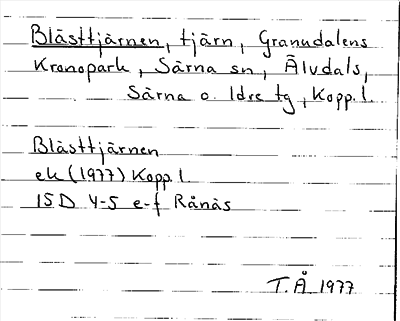 Blästtjärnen, tjärn, Granudalens
Kronopark, Särna sn, Älvdals,
Särna o. Idre tg, Kopp. l.
Blästtjärnen
ek (1977) Kopp l.
15D 4-5 e-f Rånäs
T.Å 1977